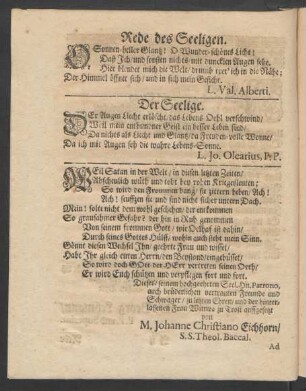 Rede des Seeligen.
O Sonnen-heller Glantz! O Wunder-schönes Licht!
Daß Ich/und sonsten nichts/mit dunckeln Augen sehe.
Hier blendet mich die Welt/drumb in die Nähe;
Der Himmel öffnet sich/und in sich mein Gesicht.
L. Val. Alberti.
Der Seelige.
Der Augen Liecht erlischt/das Lebens Oehl verschwind/
Weil mein entbundner Geist ein besser Leben find/
Da nichts als Liecht und Glantz/da Freuden-volle Wonne/
Da ich mit Augen seh die wahre Lebens-Sonne.
L. Jo. Olearius, P.P.
Weil Satan in der Welt/in diesen letzten Zeiten/
Abscheulich wütt und tobt bey rohen Kriegesleuten;
So wird den Frommen bang: sie zittern haben, Ach!
Ach! seufftzen sie und sind nicht sicher unterm Dach.
Mein! solte nicht dem wohl geschehen/der entkommen
So grausahmer Gefahr? der hin in Ruh genommen
Von seinem frommen Gott/wie Oelhaf ist dahin/
Durch seines Gottes Hülff/wohin auch steht mein Sinn.
Gönnt diesen Wechsel Ihm/geehrte Frau und wisset/
Habt Ihr gleich einen Herrn/den Beystand/eingebüsset/
So wird doch GOtt der HErr vertreten seinen Orth/
Er wird Euch schützen und verpflegen fort und fort.
Diesen/seinem hochgeehrten Seel. Hn. Patrono,
auch brüderlichen vertrauten Freunde und
Schwager/zu letzten Ehren/und der hinter-
lassenen Frau Wittwe zu Trost auffgesetzt
von
M. Johanne Christiano Eichhorn/
S. S. Theol. Baccal.
Ad